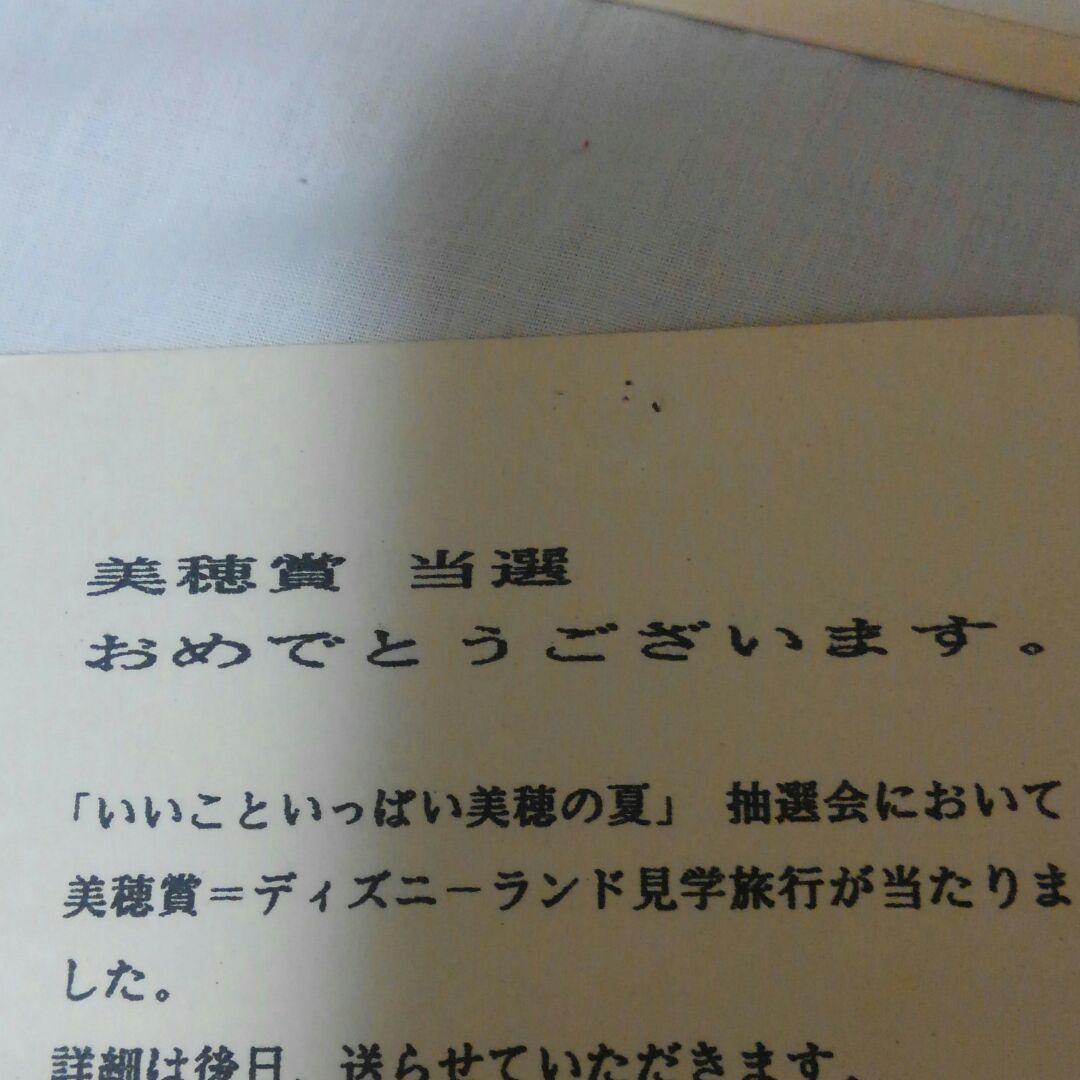 美穂賞 当選
おめでとうございます。
「いいこといっぱい美穂の夏」 抽選会において
美穂賞=ディズニーランド見学旅行が当たりま
した。
詳細は後日、送らせていただきます。